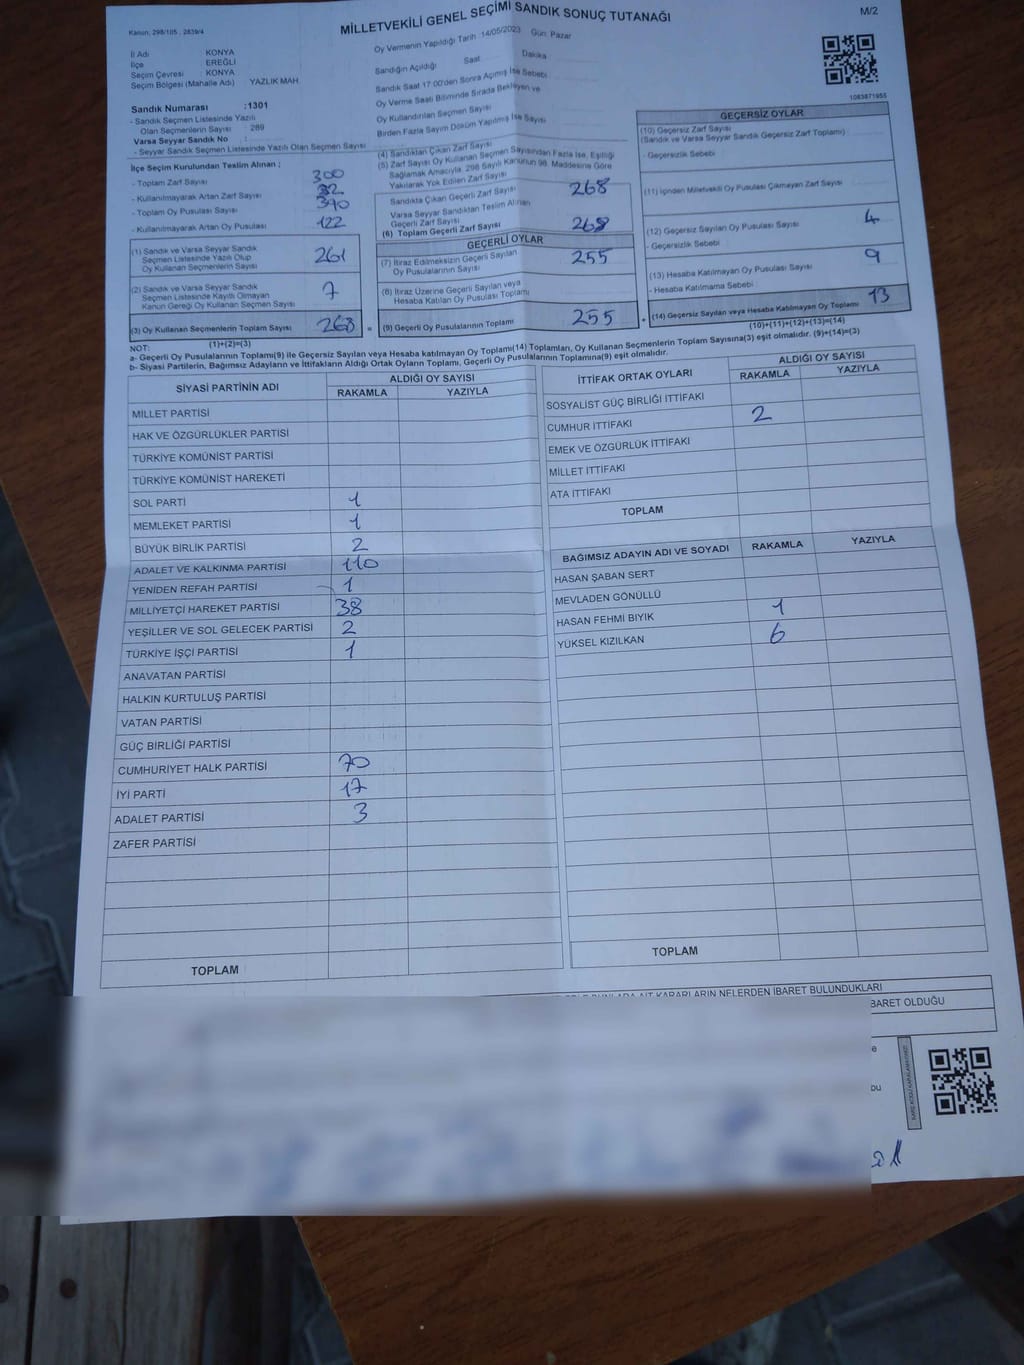 Kanun: 298/105 , 2839/4
MİLLETVEKİLİ GENEL SEÇİMİ SANDIK SONUÇ TUTANAĞI
M/2
İl Adı KONYA
İlçe EREĞLİ
Seçim Çevresi KONYA
Seçim Bölgesi (Mahalle Adı) YAZLIK MAH.
Sandık Numarası :1301
- Sandık Seçmen Listesinde Yazılı
Olan Seçmenlerin Sayısı : 289
Varsa Seyyar Sandık No :
- Seyyar Sandık Seçmen Listesinde Yazılı Olan Seçmen Sayısı
Oy Vermenin Yapıldığı Tarih 14/05/2023 Gün: Pazar
Sandığın Açıldığı Saat Dakika
Sandık Saat 17:00'den Sonra Açılmış İse Sebebi
Oy Verme Saati Bitiminde Sırada Bekleyen ve
Oy Kullandırılan Seçmen Sayısı
Birden Fazla Sayım Döküm Yapılmış İse Sayısı
1083871955
İlçe Seçim Kurulundan Teslim Alınan ;
- Toplam Zarf Sayısı 300
- Kullanılmayarak Artan Zarf Sayısı 32
- Toplam Oy Pusulası Sayısı 390
- Kullanılmayarak Artan Oy Pusulası 122
(1) Sandık ve Varsa Seyyar Sandık
Seçmen Listesinde Yazılı Olup
Oy Kullanan Seçmenlerin Sayısı 261
(2) Sandık ve Varsa Seyyar Sandık
Seçmen Listesinde Kayıtlı Olmayan
Kanun Gereği Oy Kullanan Seçmen Sayısı 7
(3) Oy Kullanan Seçmenlerin Toplam Sayısı 268 =
(1)+(2)=(3)
(4) Sandıktan Çıkan Zarf Sayısı
(5) Zarf Sayısı Oy Kullanan Seçmen Sayısından Fazla İse, Eşitliği
Sağlamak Amacıyla, 298 Sayılı Kanunun 98. Maddesine Göre
Yakılarak Yok Edilen Zarf Sayısı
Sandıkta Çıkan Geçerli Zarf Sayısı 268
Varsa Seyyar Sandıktan Teslim Alınan
Geçerli Zarf Sayısı
(6) Toplam Geçerli Zarf Sayısı 268
GEÇERLİ OYLAR
(7) İtiraz Edilmeksizin Geçerli Sayılan
Oy Pusulalarının Sayısı 255
(8) İtiraz Üzerine Geçerli Sayılan veya
Hesaba Katılan Oy Pusulası Toplamı
(9) Geçerli Oy Pusulalarının Toplamı 255 +
GEÇERSİZ OYLAR
(10) Geçersiz Zarf Sayısı
(Sandık ve Varsa Seyyar Sandık Geçersiz Zarf Toplamı)
- Geçersizlik Sebebi
(11) İçinden Milletvekili Oy Pusulası Çıkmayan Zarf Sayısı
(12) Geçersiz Sayılan Oy Pusulası Sayısı 4
- Geçersizlik Sebebi
(13) Hesaba Katılmayan Oy Pusulası Sayısı 9
- Hesaba Katılmama Sebebi
(14) Geçersiz Sayılan veya Hesaba Katılmayan Oy Toplamı 13
(10)+(11)+(12)+(13)=(14)
NOT:
a- Geçerli Oy Pusulalarının Toplamı(9) ile Geçersiz Sayılan veya Hesaba katılmayan Oy Toplamı(14) Toplamları, Oy Kullanan Seçmenlerin Toplam Sayısına(3) eşit olmalıdır. (9)+(14)=(3)
b- Siyasi Partilerin, Bağımsız Adayların ve İttifakların Aldığı Ortak Oyların Toplamı, Geçerli Oy Pusulalarının Toplamına(9) eşit olmalıdır.
SİYASİ PARTİNİN ADI ALDIĞI OY SAYISI
RAKAMLA YAZIYLA
MİLLET PARTİSİ
HAK VE ÖZGÜRLÜKLER PARTİSİ
TÜRKİYE KOMÜNİST PARTİSİ
TÜRKİYE KOMÜNİST HAREKETİ
SOL PARTİ 1
MEMLEKET PARTİSİ 1
BÜYÜK BİRLİK PARTİSİ 2
ADALET VE KALKINMA PARTİSİ 110
YENİDEN REFAH PARTİSİ 1
MİLLİYETÇİ HAREKET PARTİSİ 38
YEŞİLLER VE SOL GELECEK PARTİSİ 2
TÜRKİYE İŞÇİ PARTİSİ 1
ANAVATAN PARTİSİ
HALKIN KURTULUŞ PARTİSİ
VATAN PARTİSİ
GÜÇ BİRLİĞİ PARTİSİ
CUMHURİYET HALK PARTİSİ 70
İYİ PARTİ 17
ADALET PARTİSİ 3
ZAFER PARTİSİ
TOPLAM
İTTİFAK ORTAK OYLARI ALDIĞI OY SAYISI
RAKAMLA YAZIYLA
SOSYALİST GÜÇ BİRLİĞİ İTTİFAKI
CUMHUR İTTİFAKI 2
EMEK VE ÖZGÜRLÜK İTTİFAKI
MİLLET İTTİFAKI
ATA İTTİFAKI
TOPLAM
BAĞIMSIZ ADAYIN ADI VE SOYADI RAKAMLA YAZIYLA
HASAN ŞABAN SERT
MEVLADEN GÖNÜLLÜ
HASAN FEHMİ BIYIK 1
YÜKSEL KIZILKAN 6
TOPLAM
KARARLARIN NELERDEN İBARET BULUNDUKLARI
BARET OLDUĞU